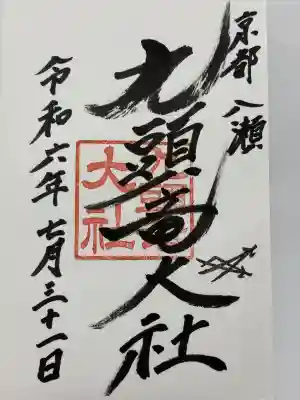 京都 八瀬
九頭竜大社
令和六年 七月三十一日
九頭竜
大社